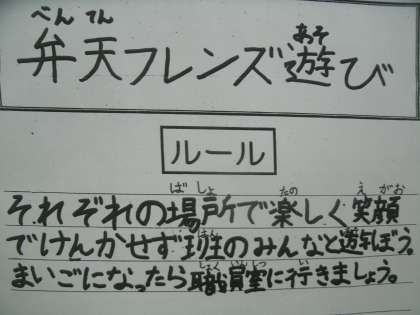 べん てん あそ
弁天フレンズ遊び
ルール
ばしょ たの えがお
それぞれの場所で楽しく笑顔
はん
でけんかせず班のみんなと遊ぼう。
しょくいんしつ い
まいごになったら職員室に行きましょう。